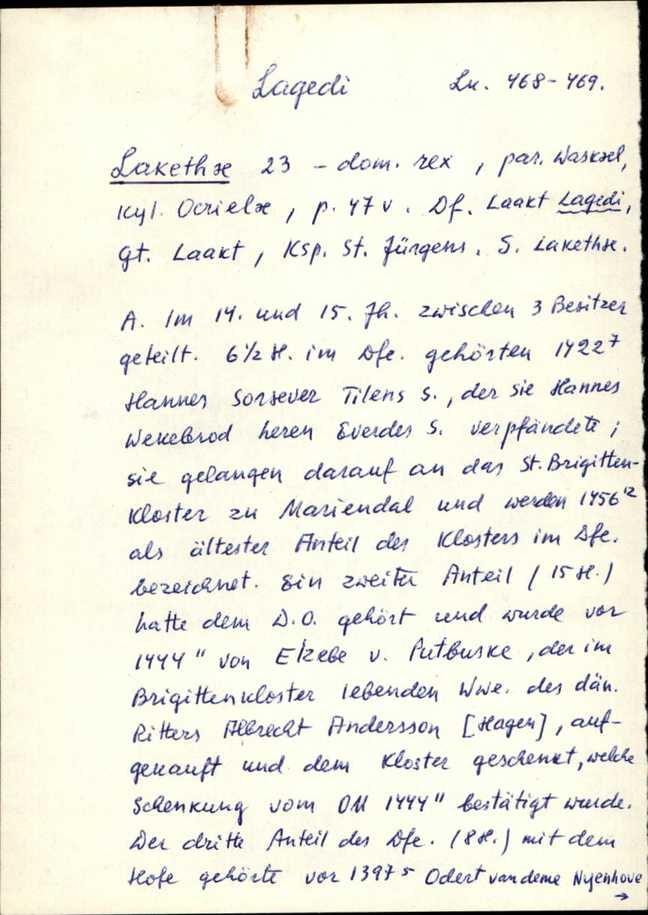 Lagedi Lk. 468-469.
Lakethæ 23 – dom. rex, par. Waskæl,
Kyl. Ocrielæ, p. 47v. Df. Laakt Lagedi,
Gt. Laakt, Ksp. St. Jürgens. S. Lakethæ.
A. Im 14. und 15. Jh. zwischen 3 Besitzer
geteilt. 6½ H. im Dfe. gehörten 1422⁷
Hannes Sorsever Tilens S., der sie Hannes
Wekebrod heren Everdes S. verpfändete;
sie gelangen darauf an das St. Brigitten-
Kloster zu Mariendal und werden 1456¹²
als ältester Anteil des Klosters im Dfe.
bezeichnet. Ein zweiter Anteil (15 H.)
hatte dem D.O. gehört und wurde vor
1444¹¹ von Elzebe v. Putbuske, der im
Brigittenkloster lebenden Wwe. des dän.
Ritters Albrecht Andersson [Hagen], auf-
gekauft und dem Kloster geschenkt, welche
Schenkung vom OM 1444¹¹ bestätigt wurde.
Der dritte Anteil des Dfe. (8 H.) mit dem
Hofe gehörte vor 1397⁵ Odert van deme Nyenhove
→